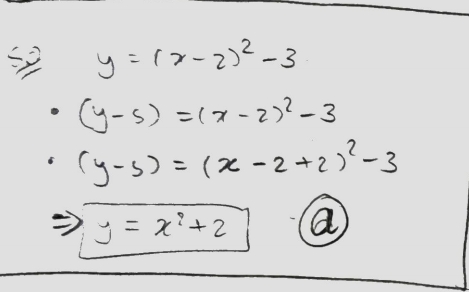 so y = (x-2)² - 3
• (y-5) = (x-2)² - 3
• (y-5) = (x-2+2)² - 3
⇒ y = x² + 2 a